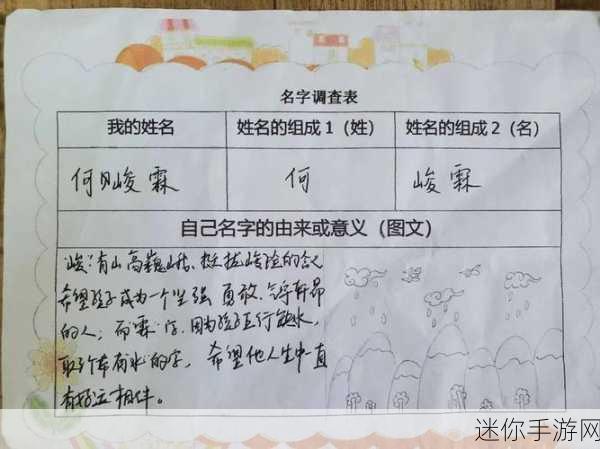 名字调查表
我的姓名 姓名的组成1（姓） 姓名的组成2（名）
何峻霖 何 峻霖
自己名字的由来或意义（图文）
峻:有山高巍峨、挺拔峻险的含义
希望孩子成为一个坚强 勇敢、气宇轩昂
的人；而"霖"字，因为孩子五行缺水，
取了个带有水的字，希望他人生中一直
有好运相伴。
迷你手游网